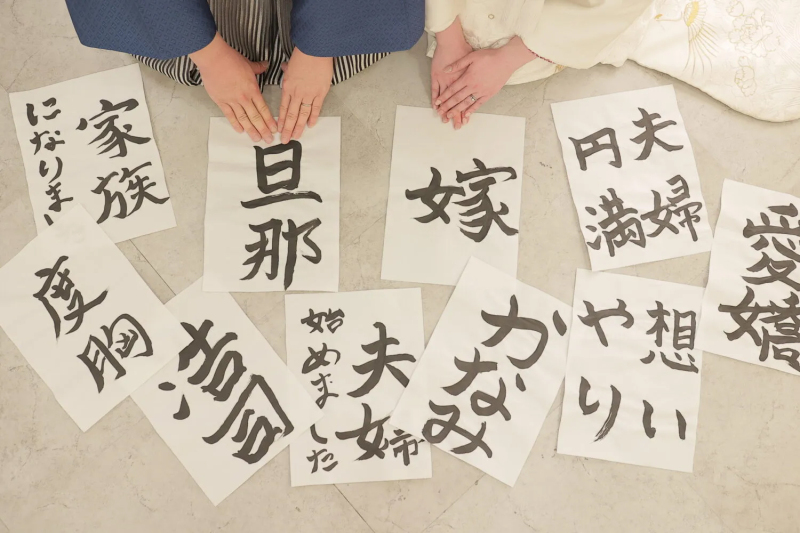 家族
になりまし
旦
那
嫁
夫婦
円満
愛
嬌
度
胸
浩
司
夫婦
始めました
かなみ
想い
やり